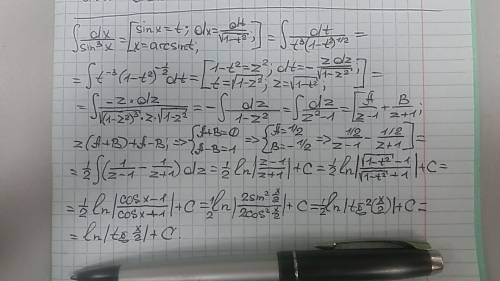 ∫ dx/sin³x = [sin x = t; dx = dt/√(1-t²); x = arcsin t;] = ∫ dt/(t³(1-t²)^(1/2)) =
= ∫ t⁻³(1-t²)^(-1/2) dt = [1-t² = z²; dt = -z dz/√(1-z²); t = √(1-z²); z = √(1-t²);] =
= ∫ -z·dz/(√(1-z²)³·z·√(1-z²)) = -∫ dz/(1-z²) = ∫ dz/(z²-1) = [A/(z-1) + B/(z+1);
z(A+B)+A-B; ⇒ {A+B=0 A-B=1 ⇒ {A=1/2 B=-1/2 ⇒ (1/2)/(z-1) - (1/2)/(z+1)] =
= 1/2 ∫(1/(z-1) - 1/(z+1)) dz = 1/2 ln|(z-1)/(z+1)| + C = 1/2 ln|(√(1-t²)-1)/(√(1-t²)+1)| + C =
= 1/2 ln|(cos x-1)/(cos x+1)| + C = 1/2 ln|2sin² x/2 / 2cos² x/2| + C = 1/2 ln|tg²(x/2)| + C =
= ln|tg x/2| + C.